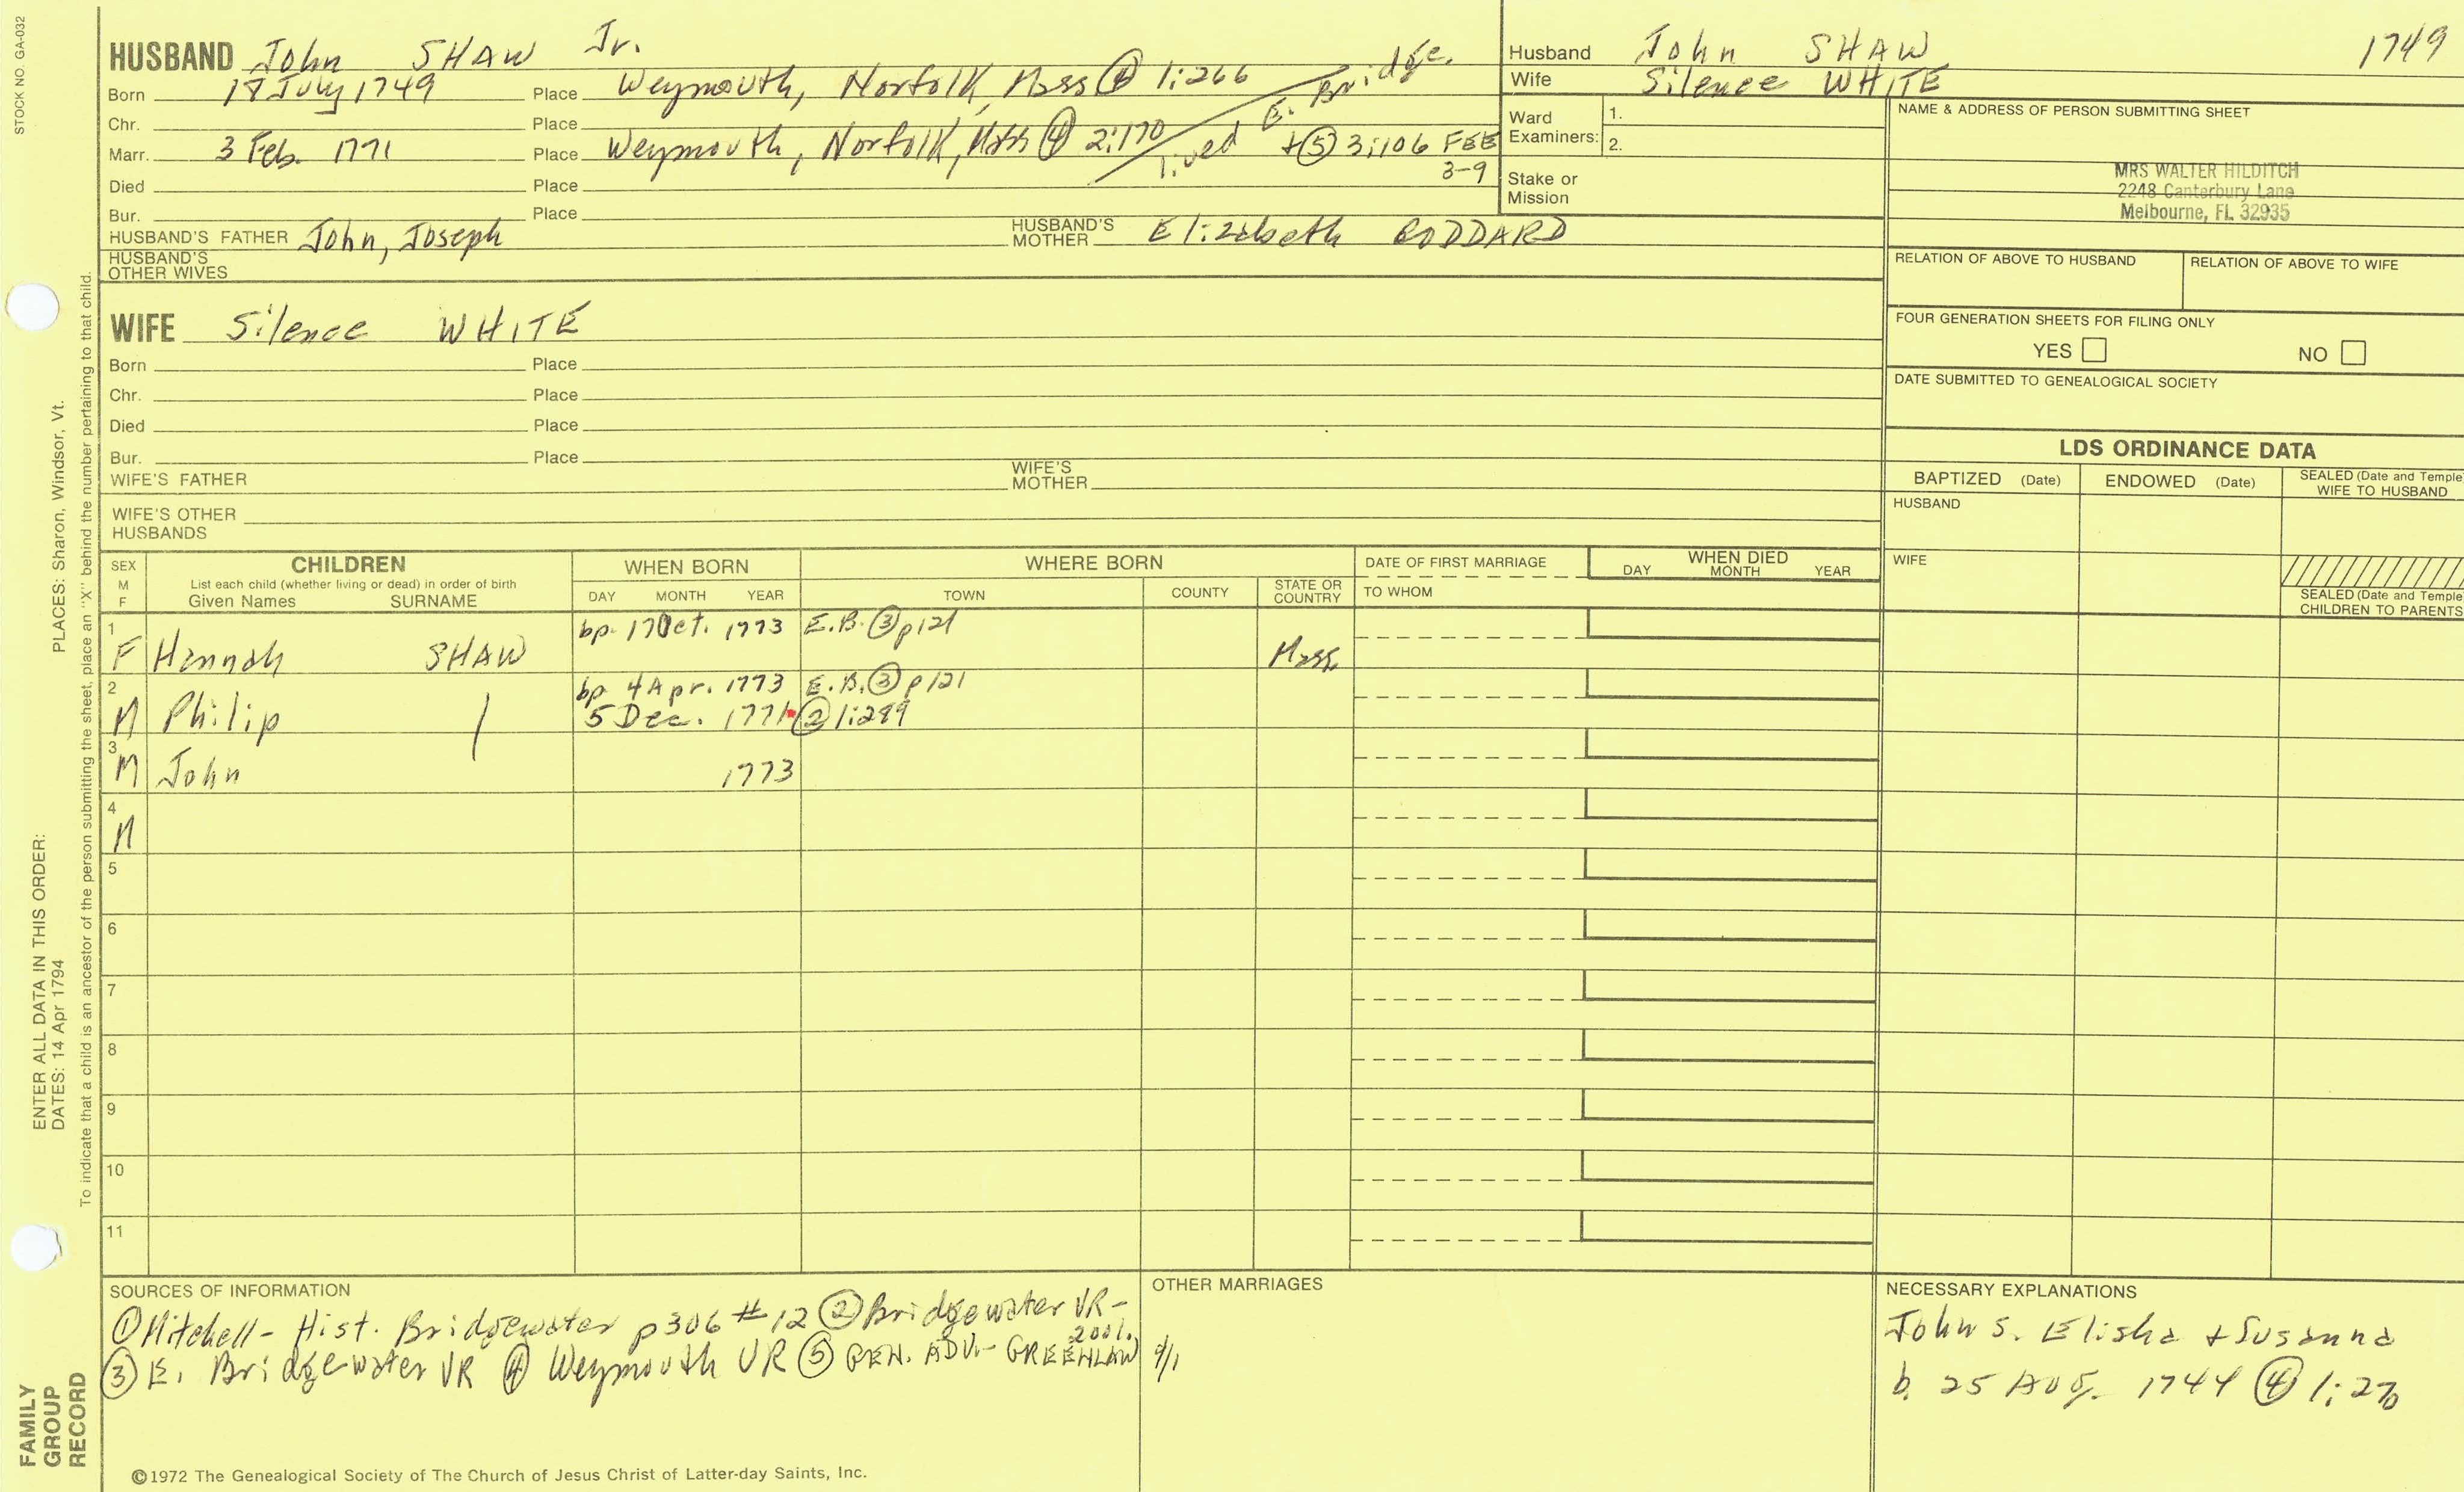 STOCK NO. GA-032
HUSBAND John SHAW Jr.
Born 18 July 1749 Place Weymouth, Norfolk, Mass ④ 1:266
Chr. Place
Marr. 3 Feb. 1771 Place Weymouth, Norfolk, Mass ④ 2:170 / lived E. Bridge. + ⑤ 3:106 FEB 3-9
Died Place
Bur. Place
HUSBAND'S FATHER John, Joseph HUSBAND'S MOTHER Elizabeth GODDARD
HUSBAND'S OTHER WIVES
Husband John SHAW 1749
Wife Silence WHITE
Ward Examiners: 1.
2.
Stake or Mission
NAME & ADDRESS OF PERSON SUBMITTING SHEET
MRS WALTER HILDITCH
2248 Canterbury Lane
Melbourne, FL 32935
RELATION OF ABOVE TO HUSBAND RELATION OF ABOVE TO WIFE
FOUR GENERATION SHEETS FOR FILING ONLY
YES NO
DATE SUBMITTED TO GENEALOGICAL SOCIETY
WIFE Silence WHITE
Born Place
Chr. Place
Died Place
Bur. Place
WIFE'S FATHER WIFE'S MOTHER
WIFE'S OTHER HUSBANDS
LDS ORDINANCE DATA
BAPTIZED (Date) ENDOWED (Date) SEALED (Date and Temple) WIFE TO HUSBAND
HUSBAND
WIFE
SEALED (Date and Temple) CHILDREN TO PARENTS
SEX M F CHILDREN List each child (whether living or dead) in order of birth Given Names SURNAME
WHEN BORN DAY MONTH YEAR
WHERE BORN TOWN COUNTY STATE OR COUNTRY
DATE OF FIRST MARRIAGE TO WHOM
WHEN DIED DAY MONTH YEAR
1 F Hannah SHAW bp. 17 Oct. 1773 E.B. ③ p121 Mass.
2 M Philip bp 4 Apr. 1773 E.B. ③ p121
5 Dec. 1771 ② 1:289
3 M John 1773
4 M
5
6
7
8
9
10
11
SOURCES OF INFORMATION
① Mitchell - Hist. Bridgewater p306 #12 ② Bridgewater VR - 2 vol.
③ E. Bridgewater VR ④ Weymouth VR ⑤ GEN. ADV. - GREENLAW
OTHER MARRIAGES
NECESSARY EXPLANATIONS
John s. Elisha + Susanna
b. 25 Aug. 1744 ④ 1:270
©1972 The Genealogical Society of The Church of Jesus Christ of Latter-day Saints, Inc.
FAMILY GROUP RECORD
ENTER ALL DATA IN THIS ORDER:
DATES: 14 Apr 1794 PLACES: Sharon, Windsor, Vt.
To indicate that a child is an ancestor of the person submitting the sheet, place an "X" behind the number pertaining to that child.